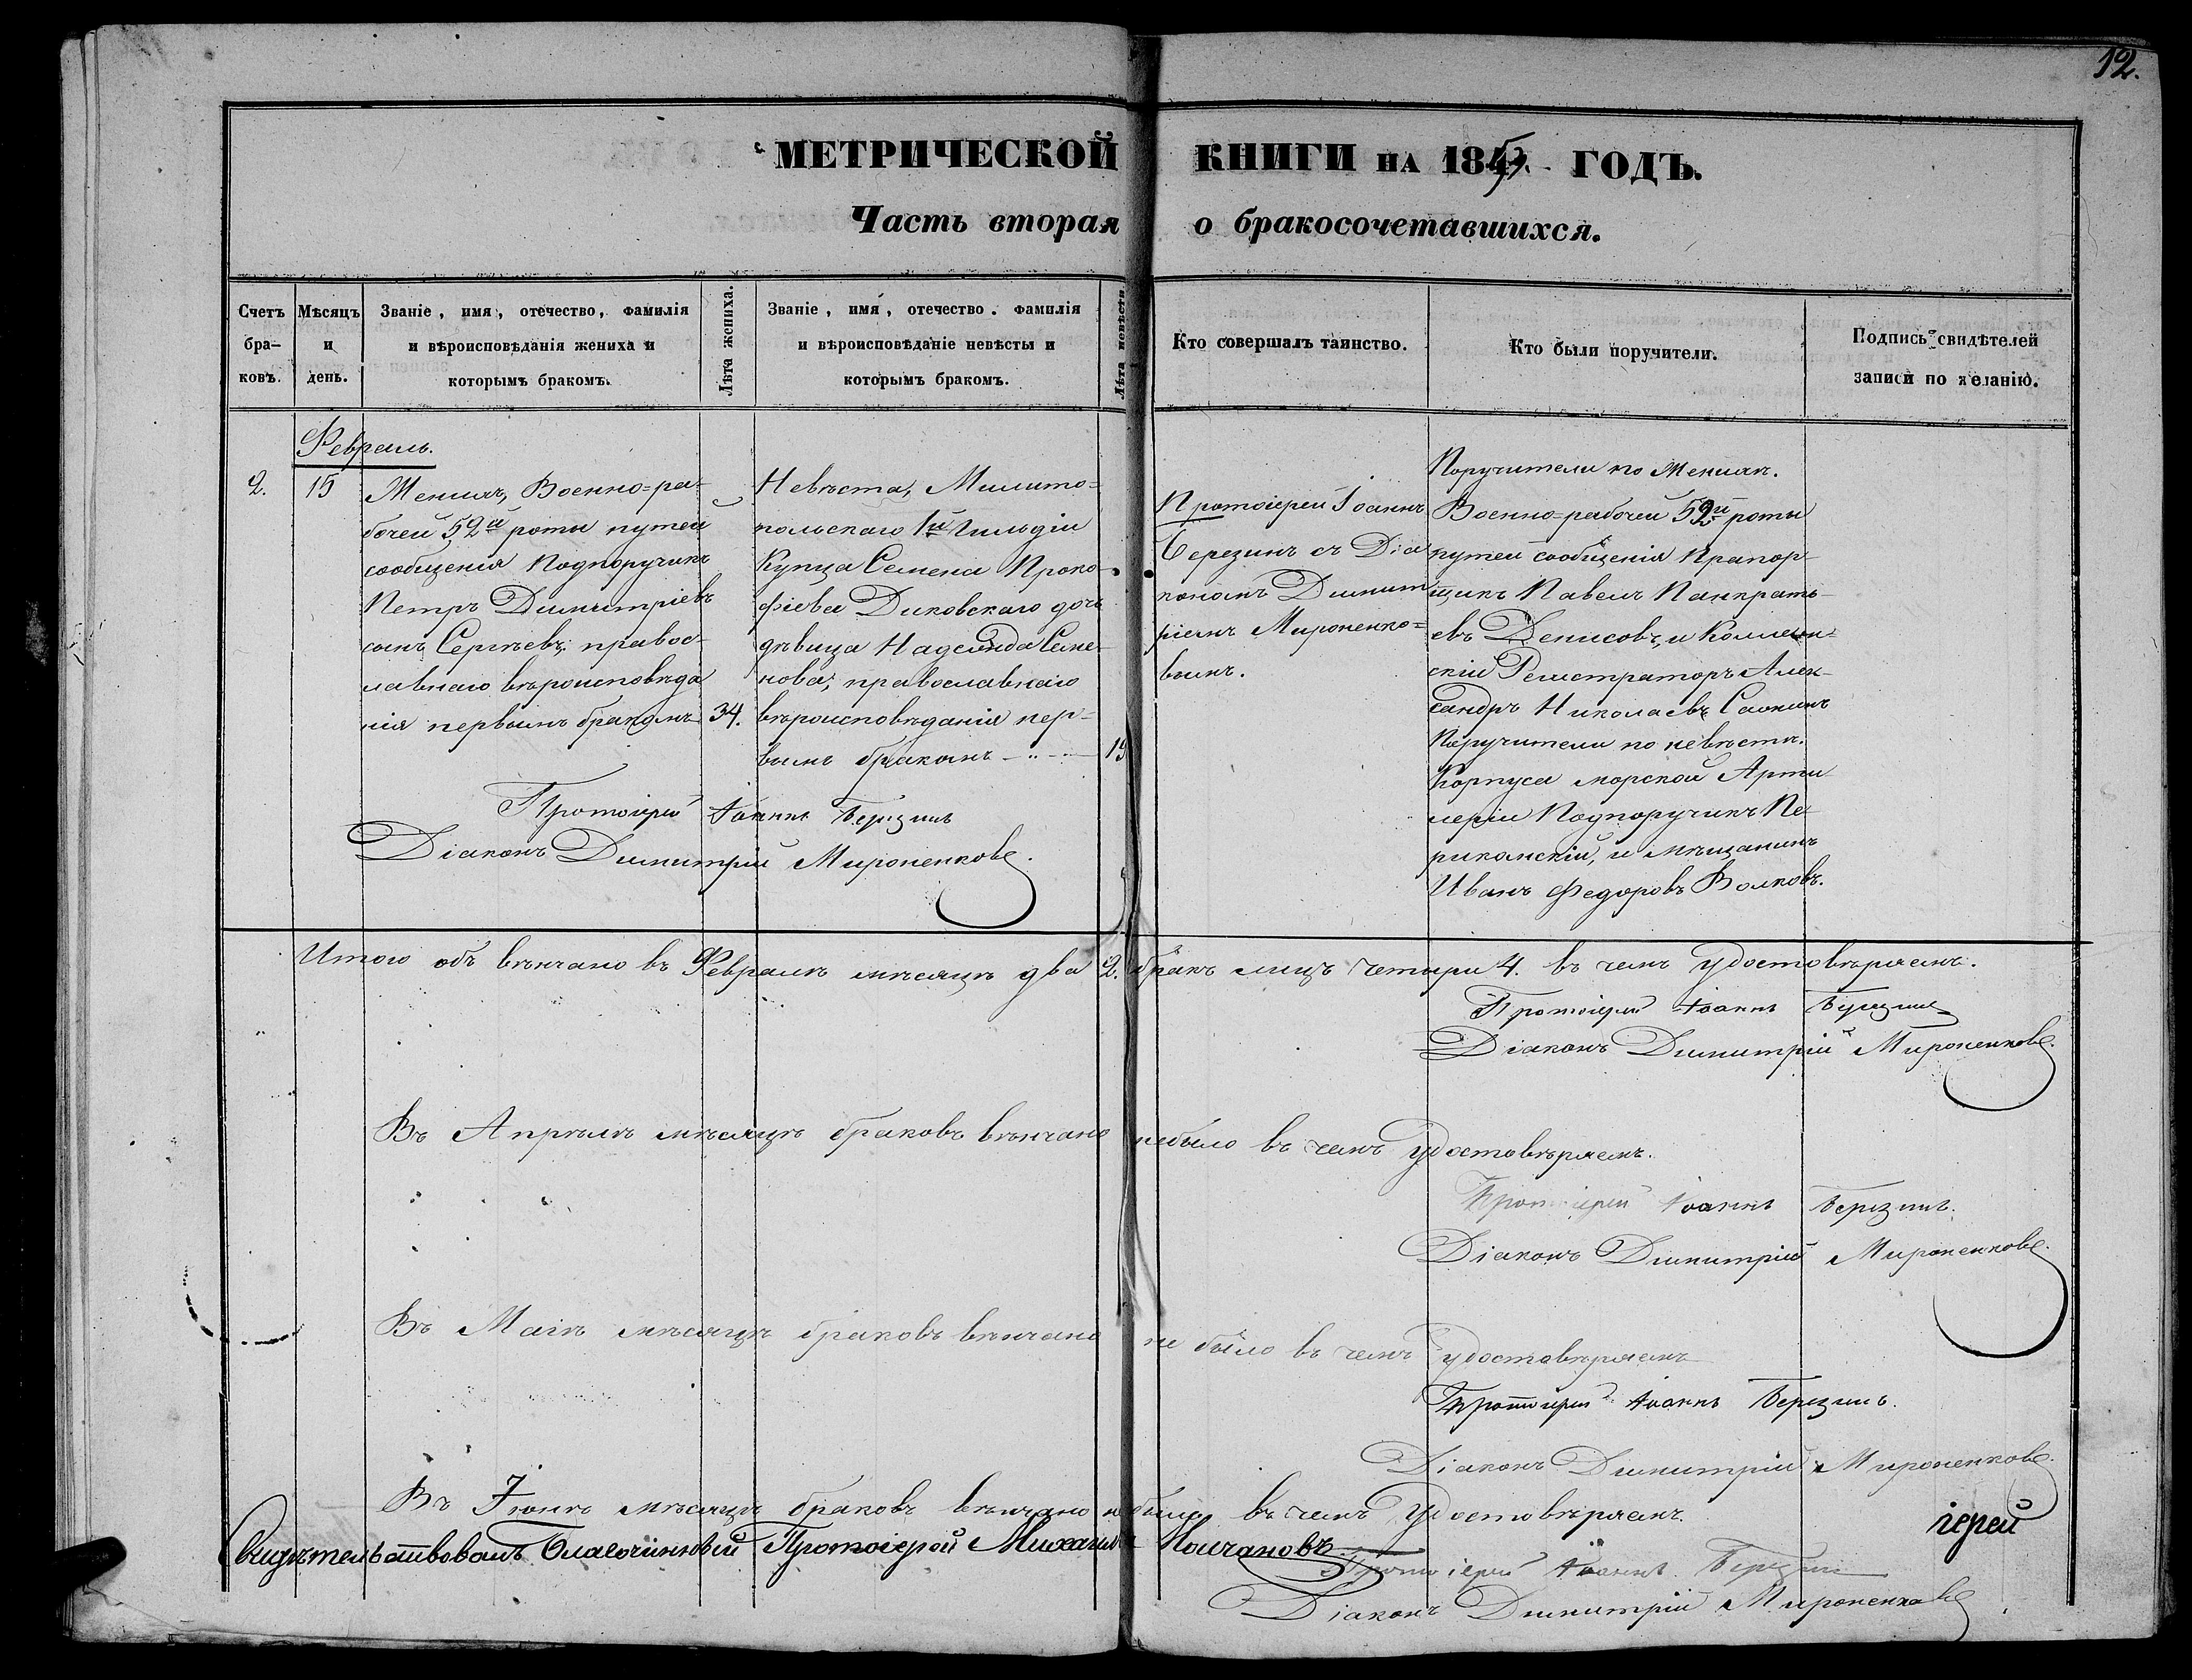 12.
МЕТРИЧЕСКОЙ КНИГИ НА 1853. ГОДЪ.
Часть вторая о бракосочетавшихся.
Счетъ бра-ковъ.
Мѣсяцъ и день.
Званіе, имя, отечество, фамилія и вѣроисповѣданія жениха и которымъ бракомъ.
Лѣта жениха.
Званіе, имя, отечество. фамилія и вѣроисповѣданіе невѣсты и которымъ бракомъ.
Лѣта невѣсты
Кто совершалъ таинство.
Кто были поручители.
Подпись свидѣтелей записи по желанію.
Февраль.
2.
15
Женихъ, Военно=ра-
бочей 52й роты путей
сообщенія Подпоручикъ
Петръ Димитріевъ
сынъ Сергѣевъ; правос-
лавнаго вѣроисповѣда
нія первымъ бракомъ
34.
Невѣста, Милито=
польскаго 1й Гильдіи
Купца Семена Проко-
фіева Диковскаго дочь
дѣвица Надежда Семе-
нова; православнаго
вѣроисповѣданія пер-
вымъ бракомъ
19
Протоіерей Іоаннъ
Березинъ съ Діа
кономъ Димит
ріемъ Мироненко=
вымъ.
Поручители по Женихѣ.
Военно=рабочей 52й роты
путей сообщенія Прапор-
щикъ Павелъ Панкрать-
евъ Денисовъ, и Коллеж-
скій Регистраторъ Алек-
сандръ Николаевъ
Поручители по невѣстѣ.
Корпуса морской Арти
леріи Подпоручикъ Пе-
риканскій, и мѣщанинъ
Иванъ Федоровъ Волковъ.
Протоіерей Іоаннъ Березинъ
Діаконъ Димитрій Мироненковъ.
Итого объ вѣнчано въ Февралѣ мѣсяцѣ два 2. бракъ лицъ четыри 4. въ чемъ удостовѣряемъ.
Протоіерей Іоаннъ Березинъ
Діаконъ Димитрій Мироненковъ.
Въ Апрѣлѣ мѣсяцѣ браковъ вѣнчано небыло въ чемъ удостовѣряемъ.
Протоіерей Іоаннъ Березинъ.
Діаконъ Димитрій Мироненковъ.
Въ Маіѣ мѣсяцѣ браковъ вѣнчано не было въ чемъ удостовѣряемъ
Протоіерей Іоаннъ Березинъ.
Діаконъ Димитрій Мироненковъ.
Въ Іюнѣ мѣсяцѣ браковъ вѣнчано небыло въ чемъ удостовѣряемъ.
іерей
Свидѣтельствовалъ Благочинный Протоіерей Михаилъ Молчановъ
Протоіерей Іоаннъ Березинъ
Діаконъ Димитрій Мироненковъ